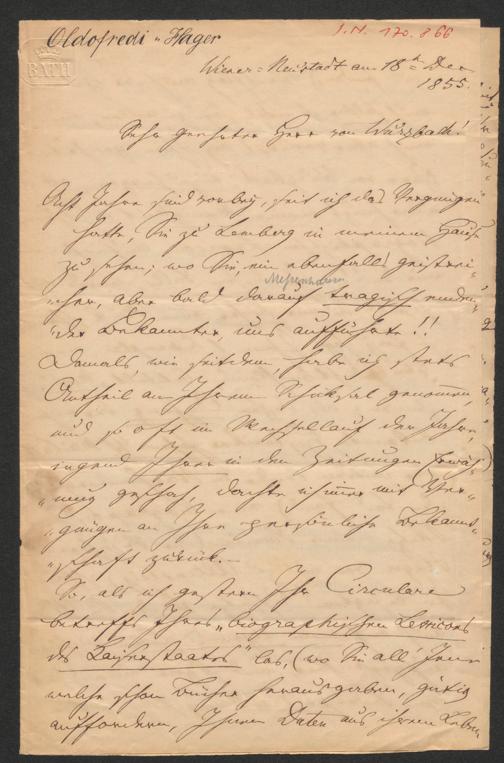 Oldofredi-Hager
I.N. 170.866
BATH
Wiener-Neustadt am 18t Dec.
1855.
Sehr geehrter Herr von Wurzbach!
Acht Jahre sind vorbey, seit ich das Vergnügen
hatte, Sie zu Lemberg in meinem Hause
zu sehen; wo Sie, ein ebenfalls geistrei-
Messenhauser
"cher, aber bald darauf tragisch enden-
"der Bekannter, uns aufführte!!
Damals, wie seitdem, habe ich stets
Antheil an Ihrem Schicksal genommen,
und so oft im Wechsellauf der Jahre,
irgend Ihrer in den Zeitungen Erwäh-
"nung geschah, dachte ich immer mit Ver-
"gnügen an Ihre persönliche Bekannt-
"schaft zurück.—
So, als ich gestern Ihr Circulare
betreffs Ihres "biographischen Lexicons
des Kaiserstaates" las, (wo Sie all' Jene
welche schon Bücher herausgaben, gütig
auffordern, Ihnen Daten aus ihrem Leben